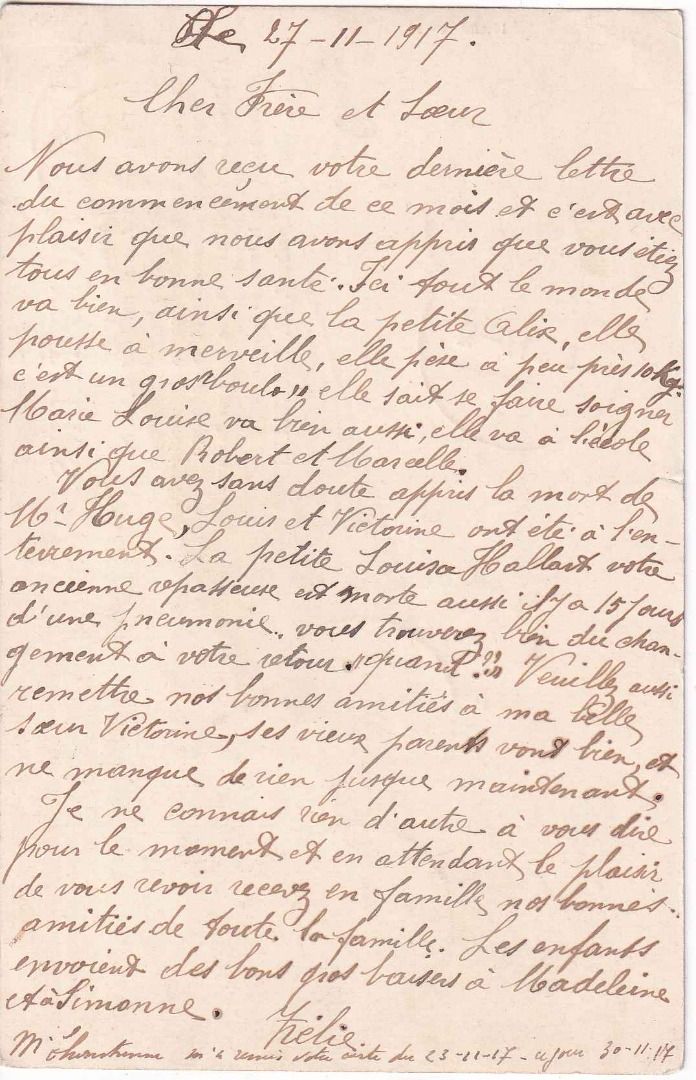 Le 27-11-1917.
Cher Frère et Sœur
Nous avons reçu votre dernière lettre
du commencement de ce mois et c'est avec
plaisir que nous avons appris que vous étiez
tous en bonne santé. Ici tout le monde
va bien, ainsi que la petite Alix, elle
pousse à merveille, elle pèse à peu près 10 Kg.
c'est un gros "boulo" elle sait se faire soigner
Marie Louise va bien aussi, elle va à l'école
ainsi que Robert et Marcelle.
Vous avez sans doute appris la mort de
Mr Huge, Louis et Victorine ont été à l'en-
terrement. La petite Louisa Hallart votre
ancienne repasseuse est morte aussi il y a 15 jours
d'une pneumonie.. vous trouverez bien du chan-
gement à votre retour "quand??" Veuillez aussi
remettre nos bonnes amitiés à ma belle
sœur Victorine, ses vieux parents vont bien, et
ne manque de rien jusque maintenant.
Je ne connais rien d'autre à vous dire
pour le moment et en attendant le plaisir
de vous revoir recevez en famille nos bonnes
amitiés de toute la famille. Les enfants
envoient des bons gros baisers à Madeleine
et à Simonne.
Zélie
Mr m'a remis votre carte du 23-11-17 - ce jour 30-11-17